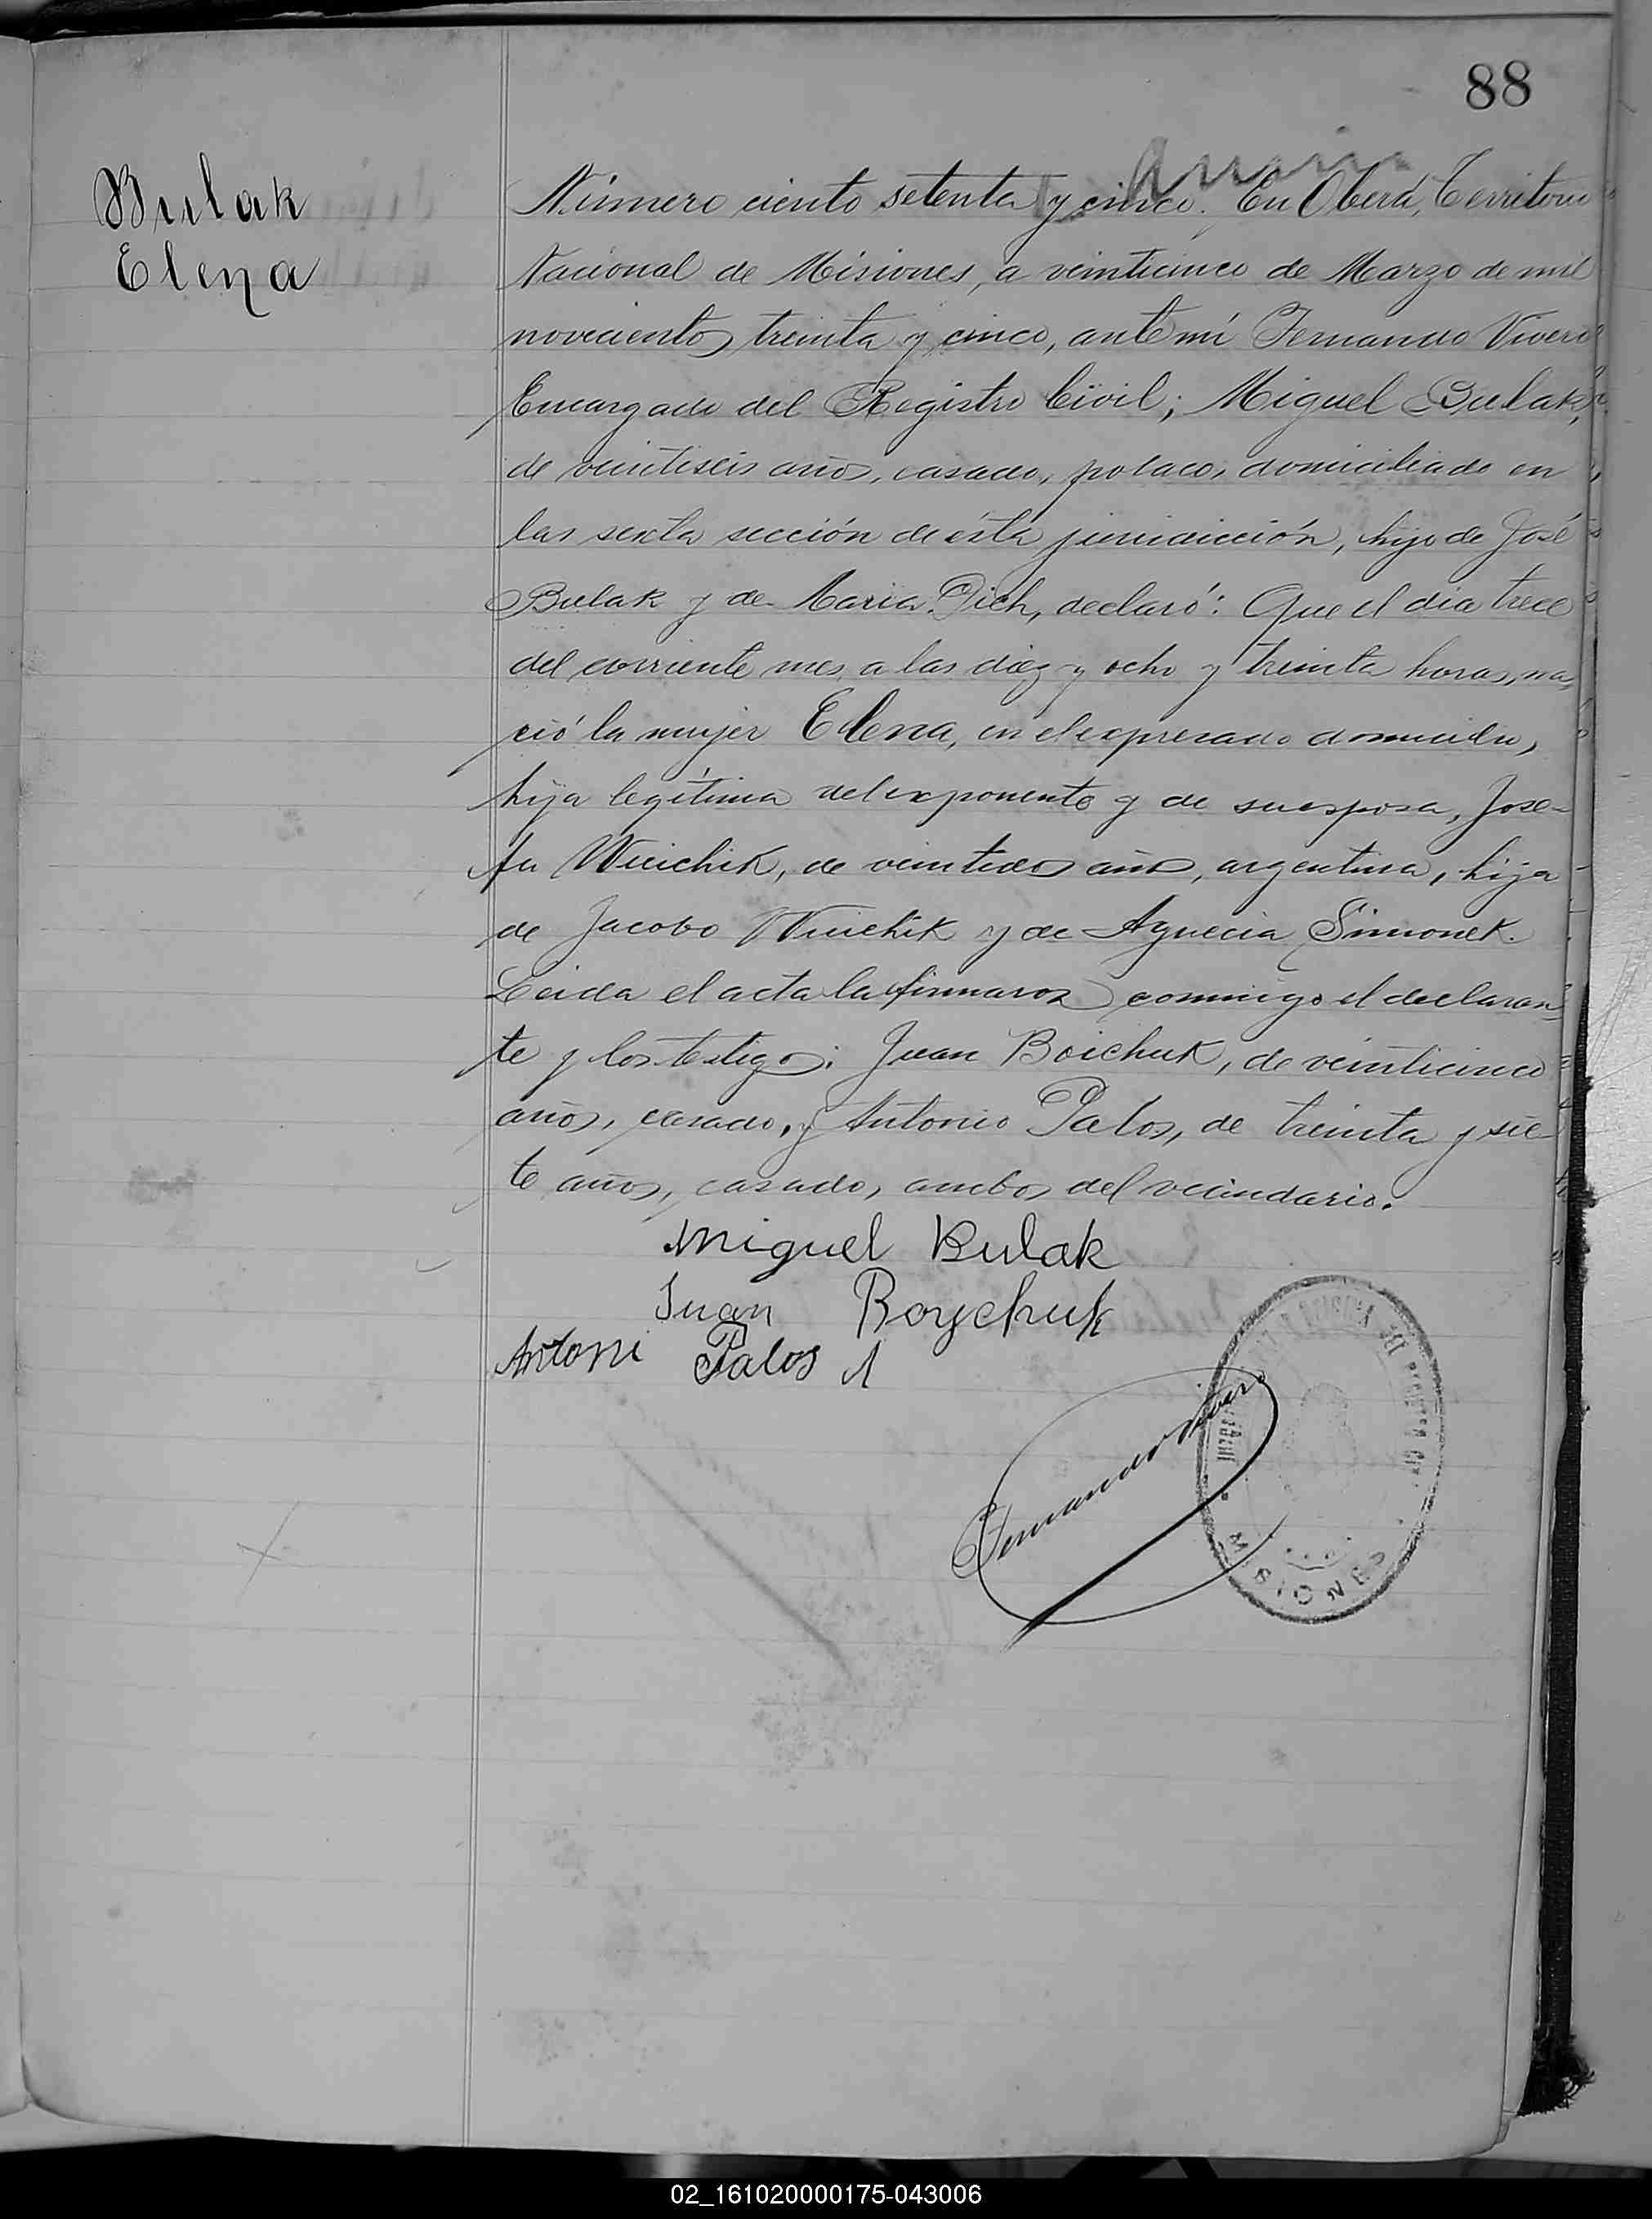 88
Bulak
Elena
Número ciento setenta y cinco. En Oberá, Territorio
Nacional de Misiones, a veinticinco de Marzo de mil
novecientos treinta y cinco, ante mí Fernando Vivero
Encargado del Registro Civil; Miguel Bulak,
de veintiseis años, casado, polaco, domiciliado en
las sexta sección de ésta jurisdicción, hijo de José
Bulak y de María Dich, declaró: Que el día trece
del corriente mes a las diez y ocho y treinta horas, na-
ció la mujer Elena, en el expresado domicilio,
hija legítima del exponente y de su esposa, Jose-
fa Wuichik, de veintidos años, argentina, hija
de Jacobo Wuichik y de Agnecia Simonek.
Leida el acta la firmaron conmigo el declaran-
te y los testigos: Juan Boichuk, de veinticinco
años, casado, y Antonio Palos, de treinta y sie-
te años, casado, ambos del vecindario.
Miguel Bulak
Juan Boychuk
Antoni Palos
Fernando Vivero
MISIONES
02_161020000175-043006